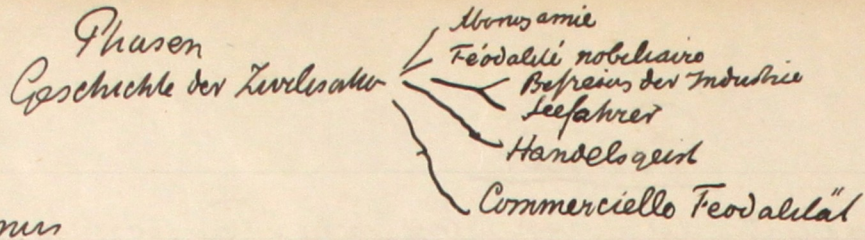 Phasen
Geschichte der Zivilisation
Monogamie
Féodalité nobiliaire
Befreiung der Industrie
Seefahrer
Handelsgeist
Commercielle Feodalität